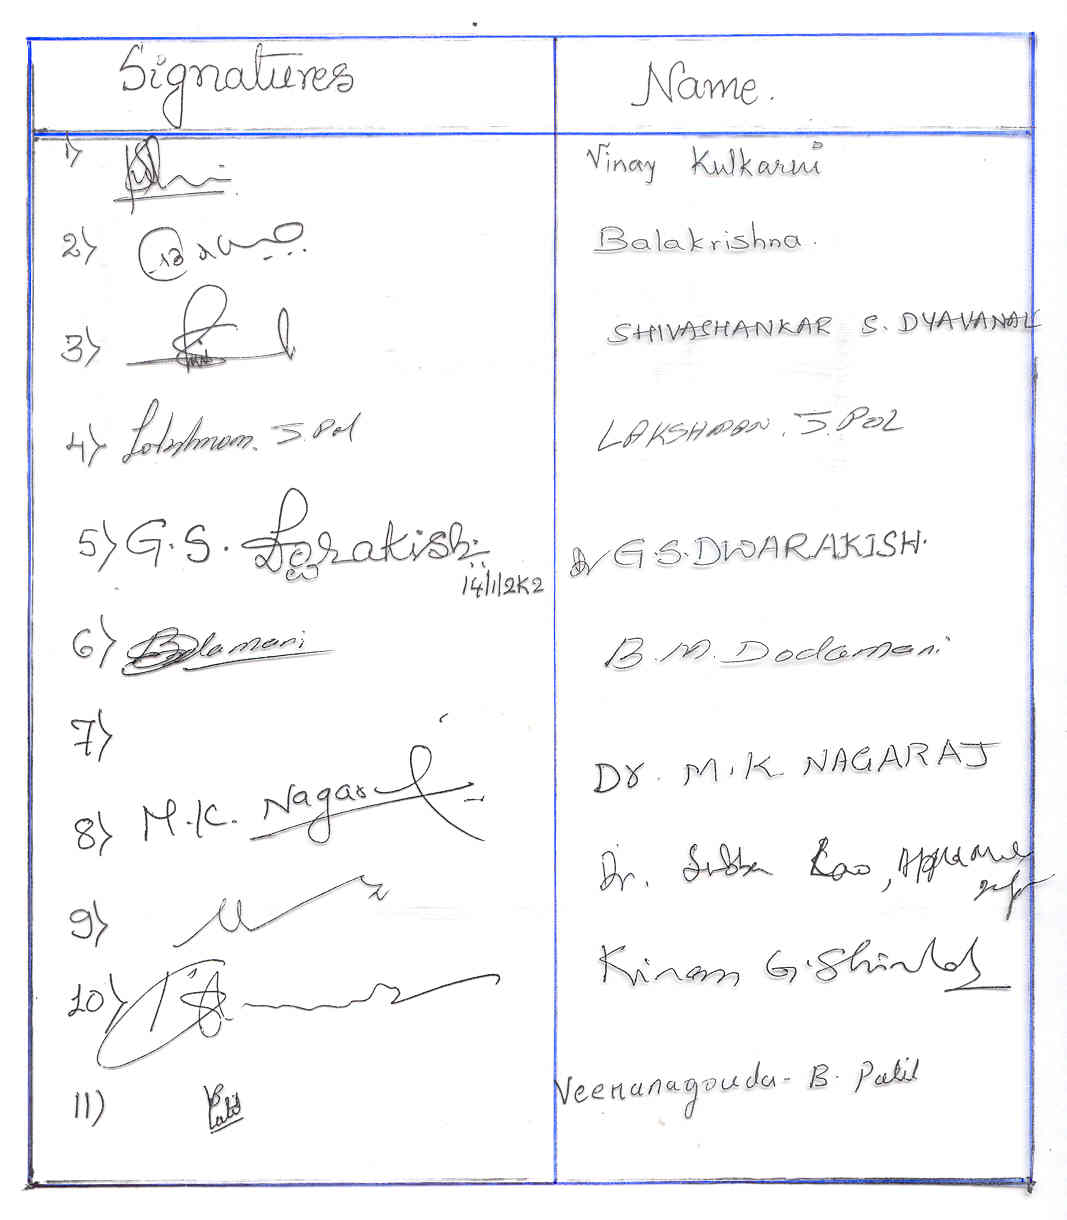 Signatures Name.
1) Vinay Kulkarni
2) Balakrishna.
3) SHIVASHANKAR S. DYAVANAL
4) Lakshman. J. Pol LAKSHMAN. J. POL
5) G.S. Dwarakish Dr G.S. DWARAKISH.
14/1/2K2
6) B.M. Dodamani
7)
Dr. M.K. NAGARAJ
8) M.K. Nagaraj
Dr. Subba Rao,
9)
Kiran G. Shirlal
10)
11) Patil Veeranagouda - B. Patil